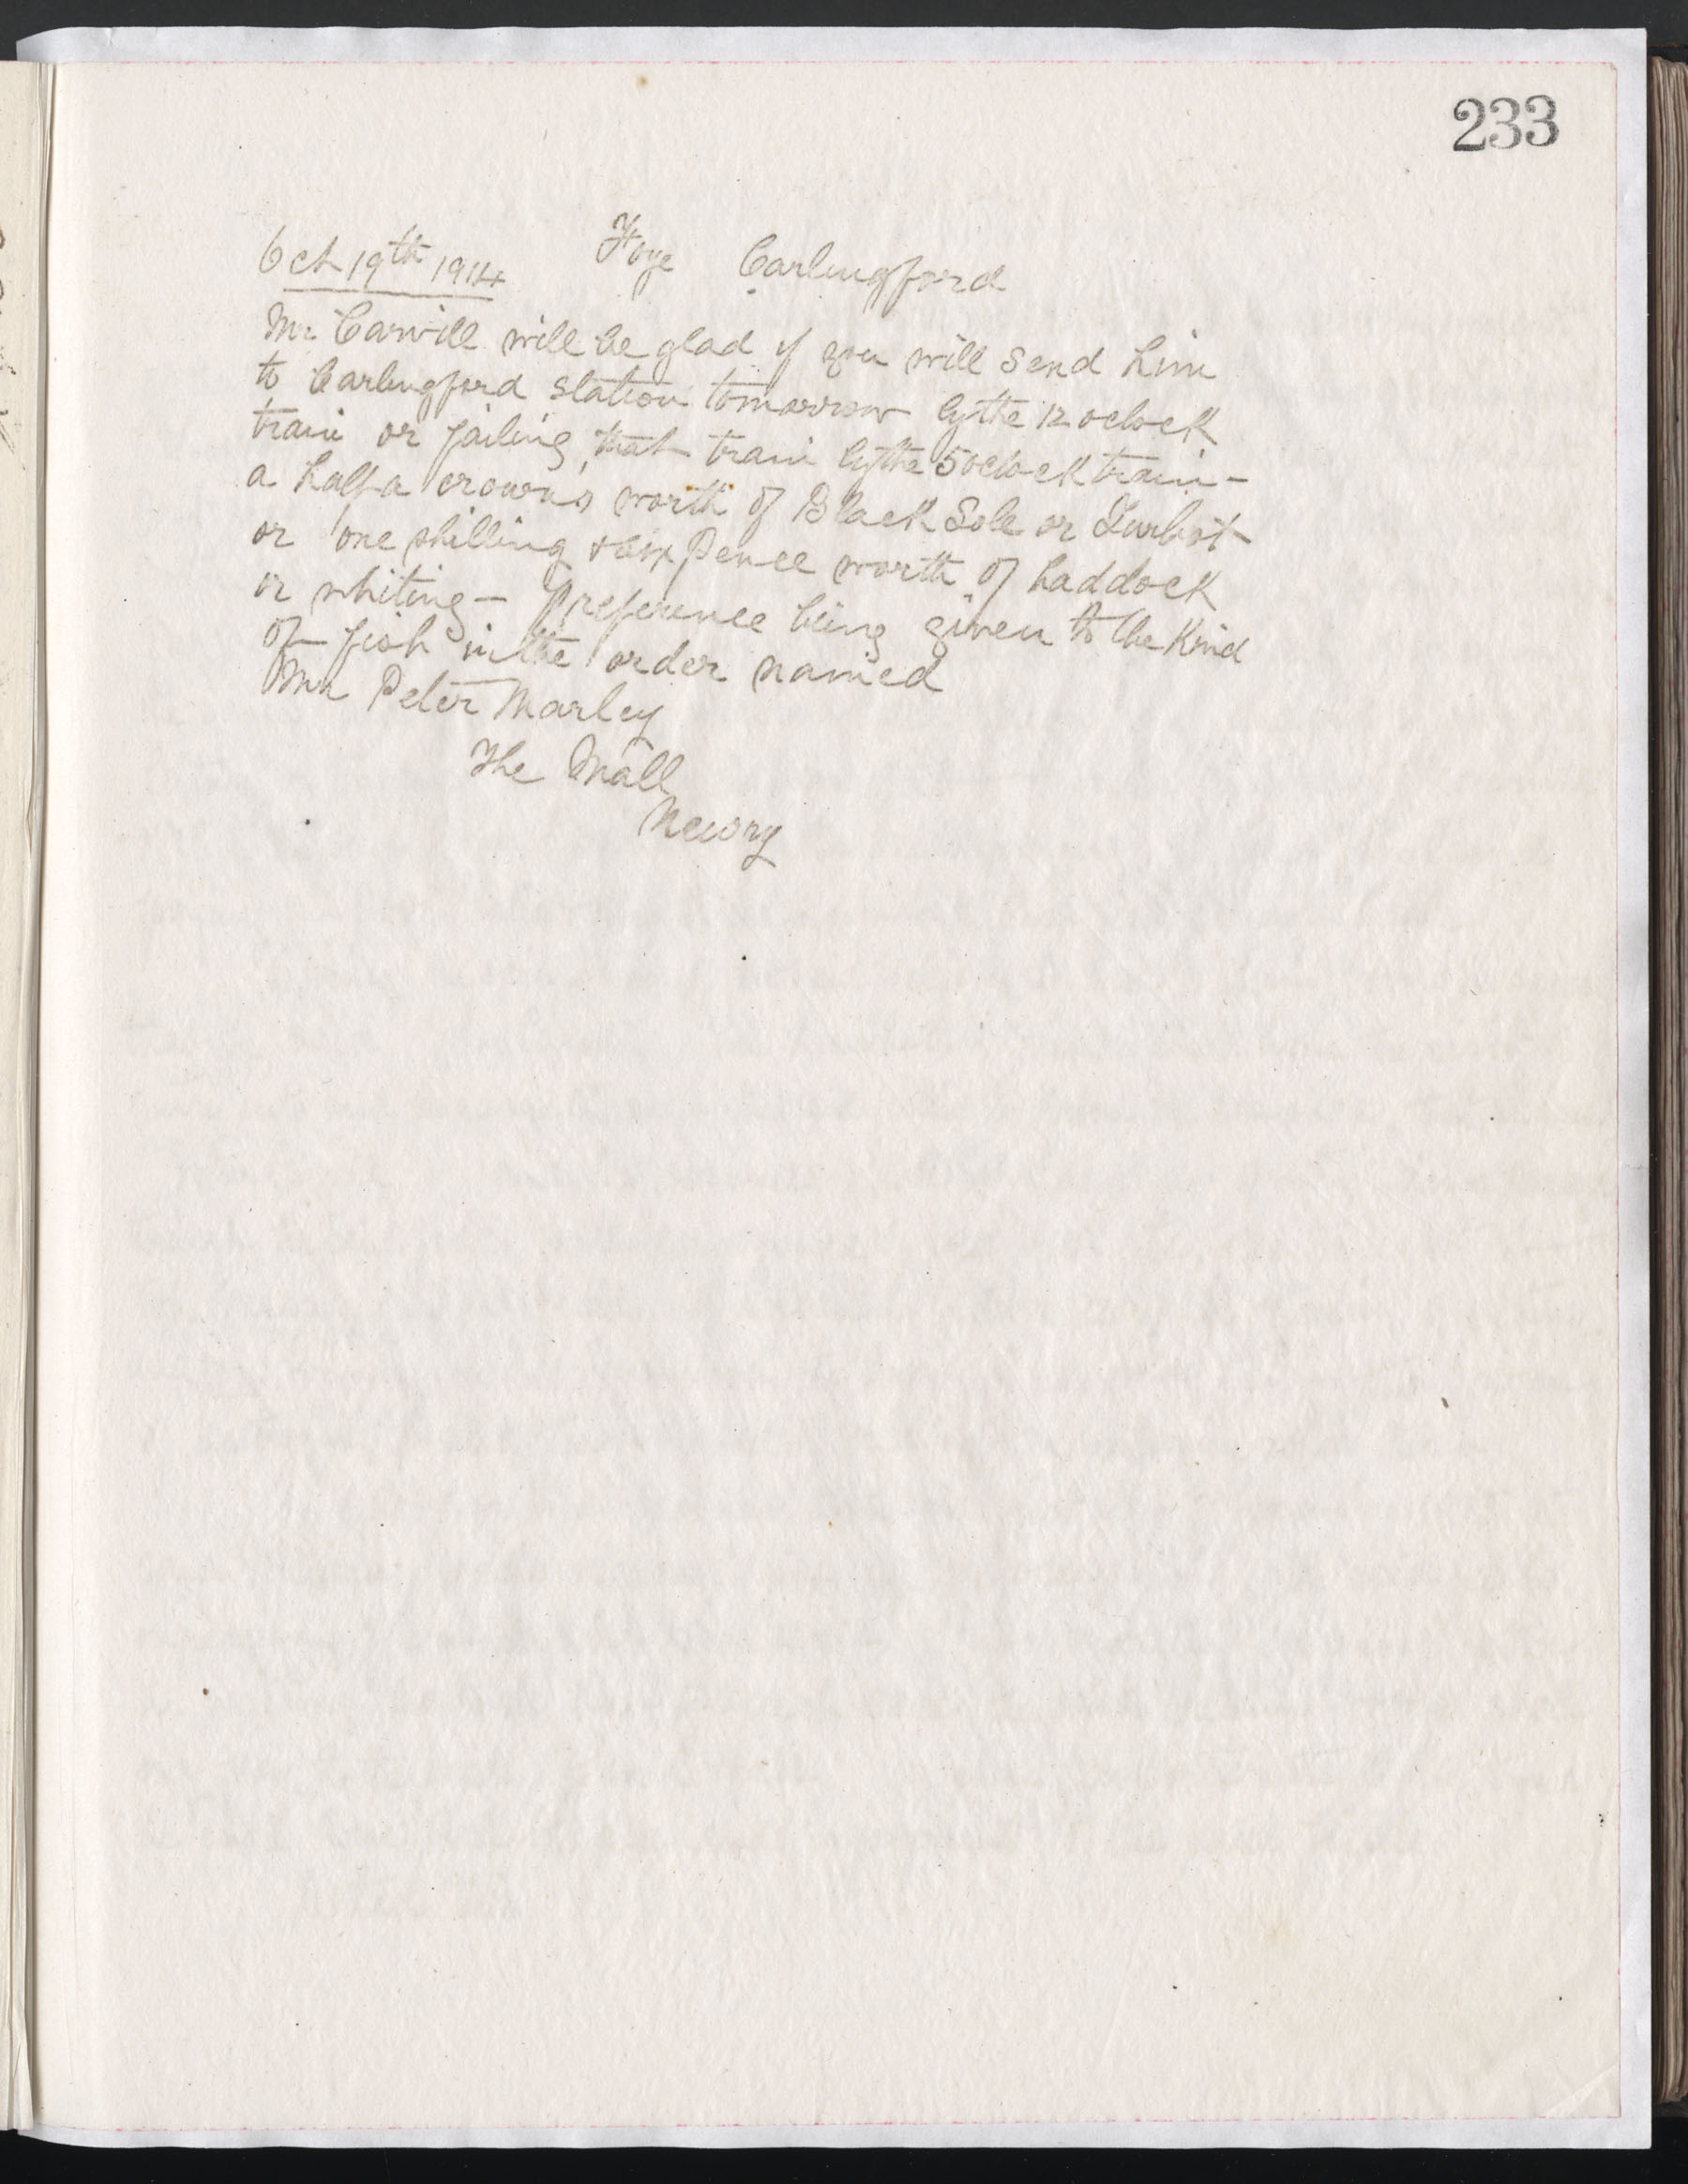 233
Oct 19th 1914 Foye Carlingford
Mr Carvill will be glad if you will send him
to Carlingford station tomorrow by the 12 oclock
train or failing that train by the 5 oclock train -
a half a crowns worth of Black Sole or Turbot
or one shilling & six pence worth of haddock
or whiting - preference being given to the Kind
of fish in the order named
Mr Peter Marley
The Mall
Newry